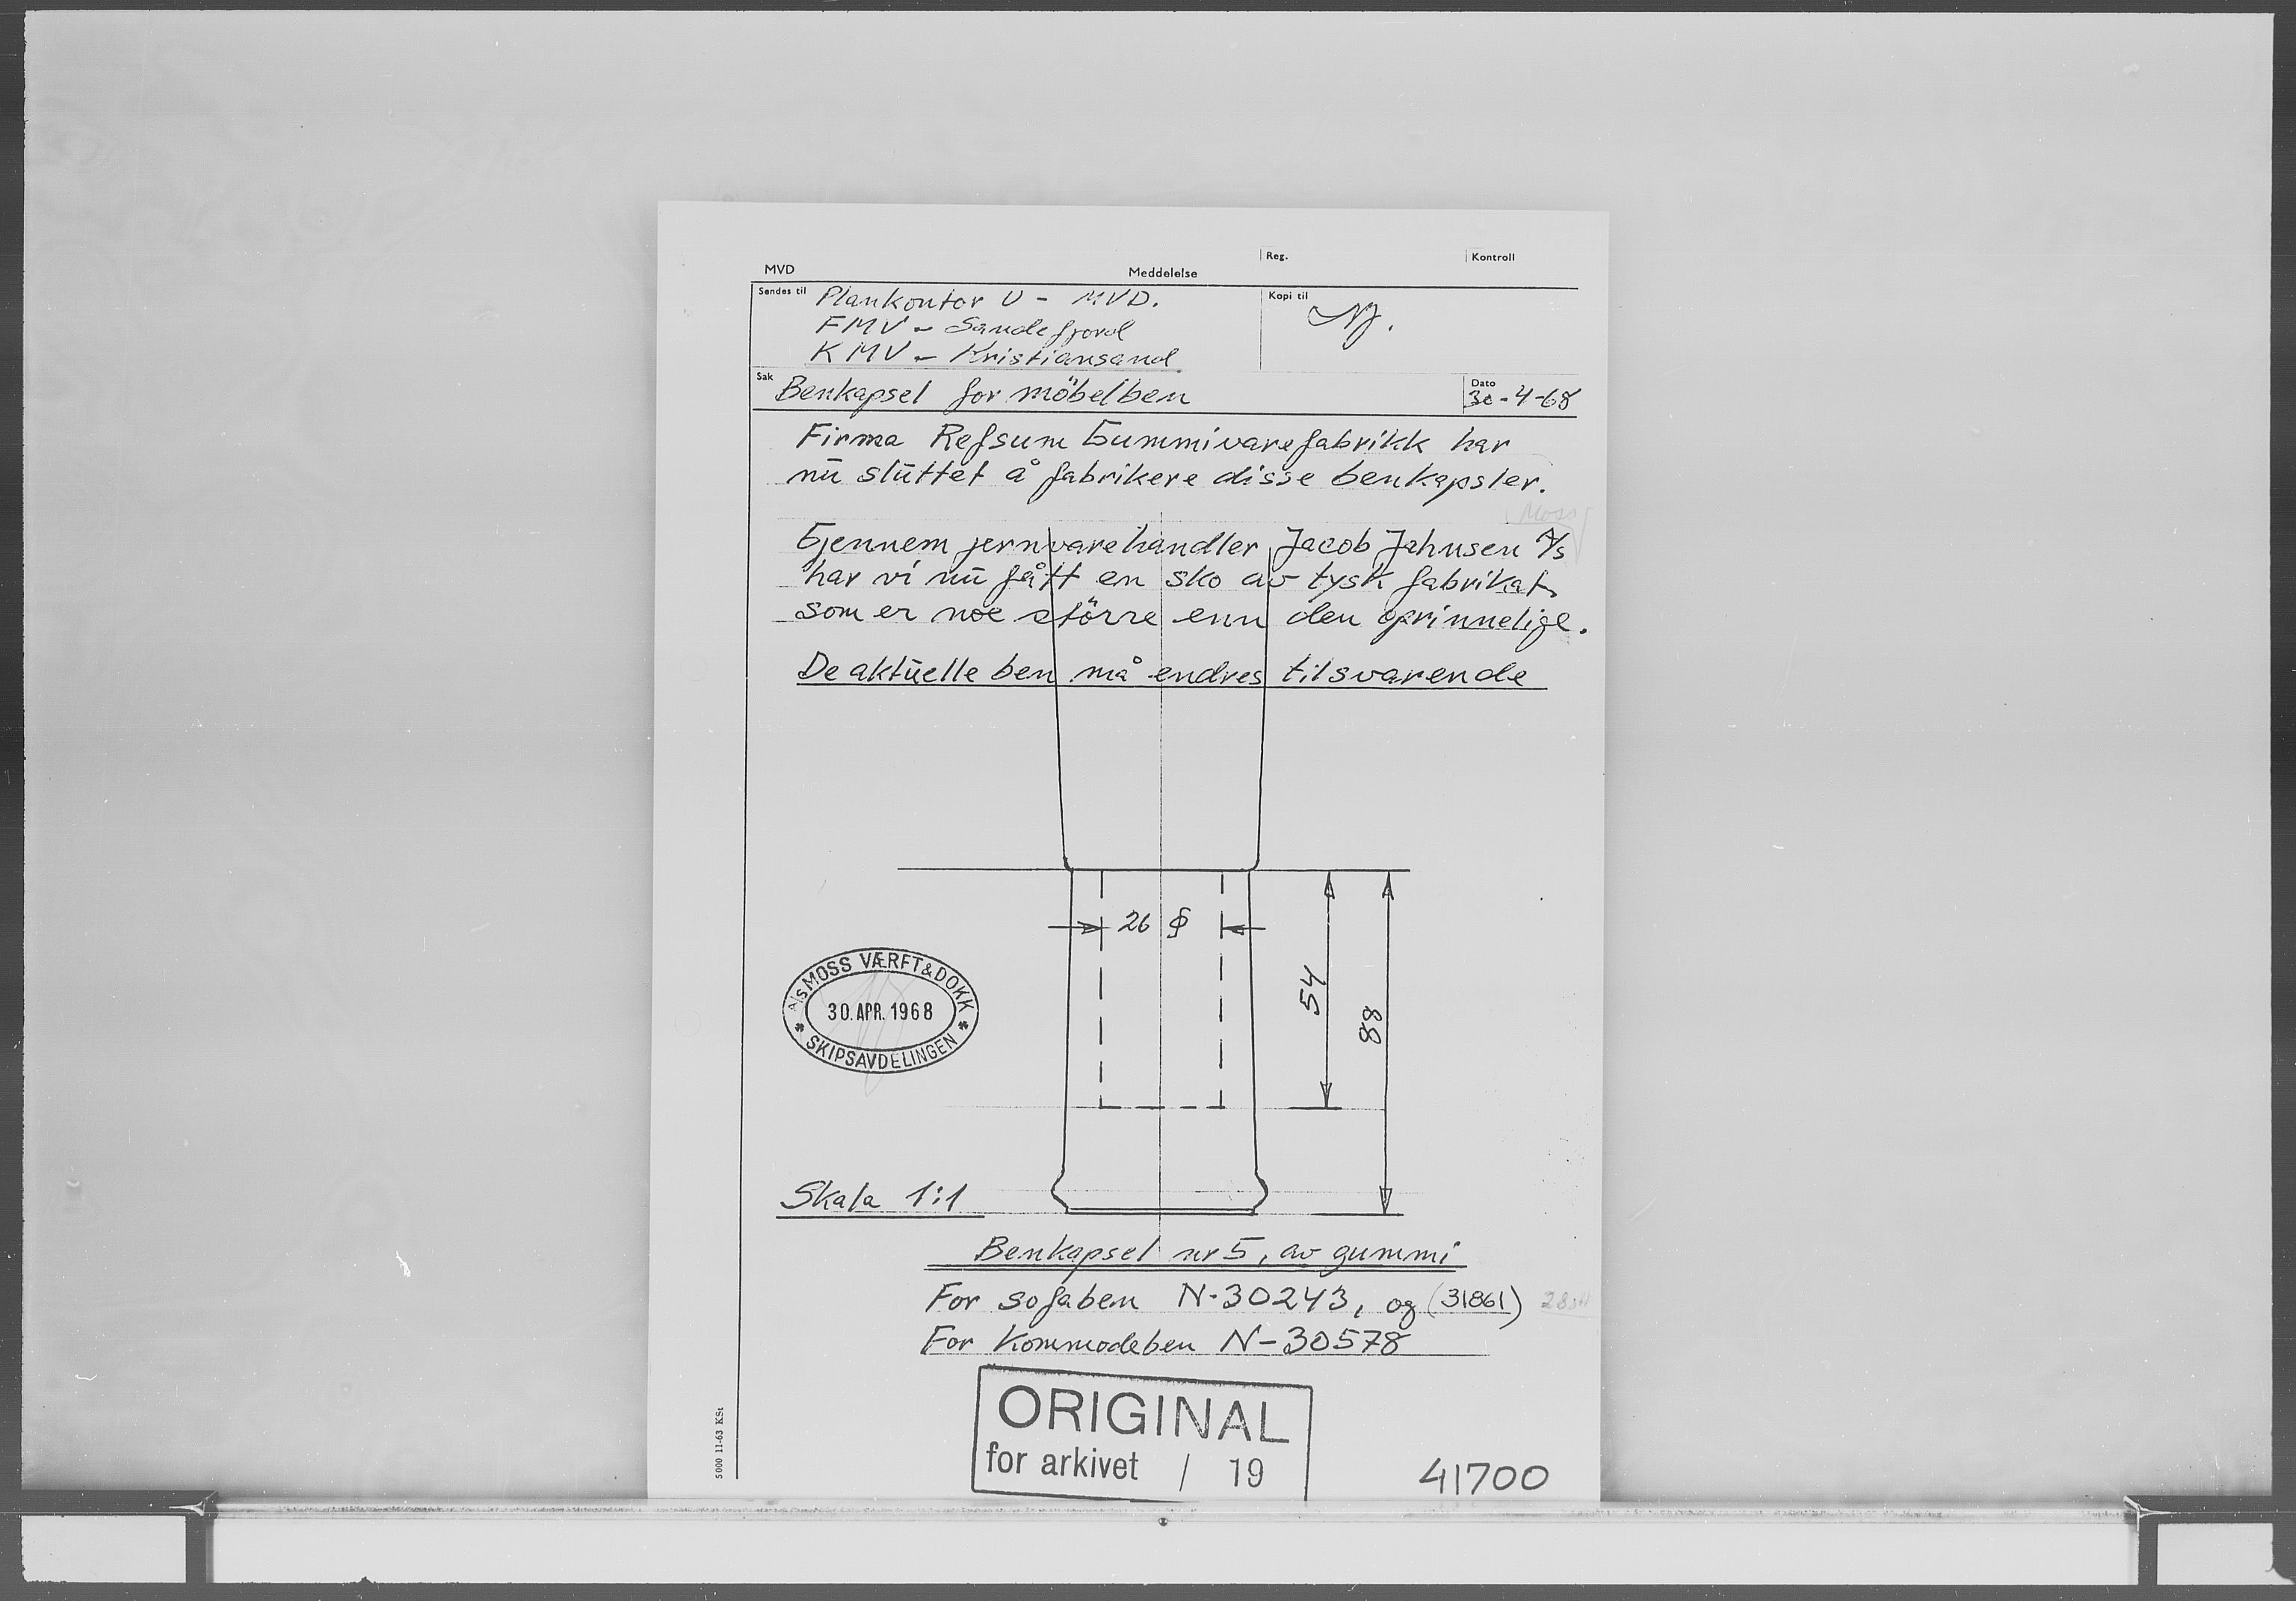 Reg.
Kontroll
MVD
Meddelelse
Sendes til Plankontor U - MVD.
FMV - Sandefjord
KMV - Kristiansand
Kopi til
Sak Benkapsel for möbelben
Dato
30-4-68
Firma Refsum Gummivarefabrikk har
nu sluttet å fabrikere disse benkapsler.
Moss
Gjennem jernvarehandler Jacob Jahnsen A/s
har vi nu fått en sko av tysk fabrikat
som er noe större enn den oprinnelige.
De aktuelle ben må endres tilsvarende
26 ϕ
54
88
A/s MOSS VÆRFT & DOKK
30. APR. 1968
SKIPSAVDELINGEN
Skala 1:1
Benkapsel nr 5, av gummi
For sofaben N-30243, og (31861)
For Kommodeben N-30578
ORIGINAL
for arkivet / 19
41700
5000 11-63 KSt